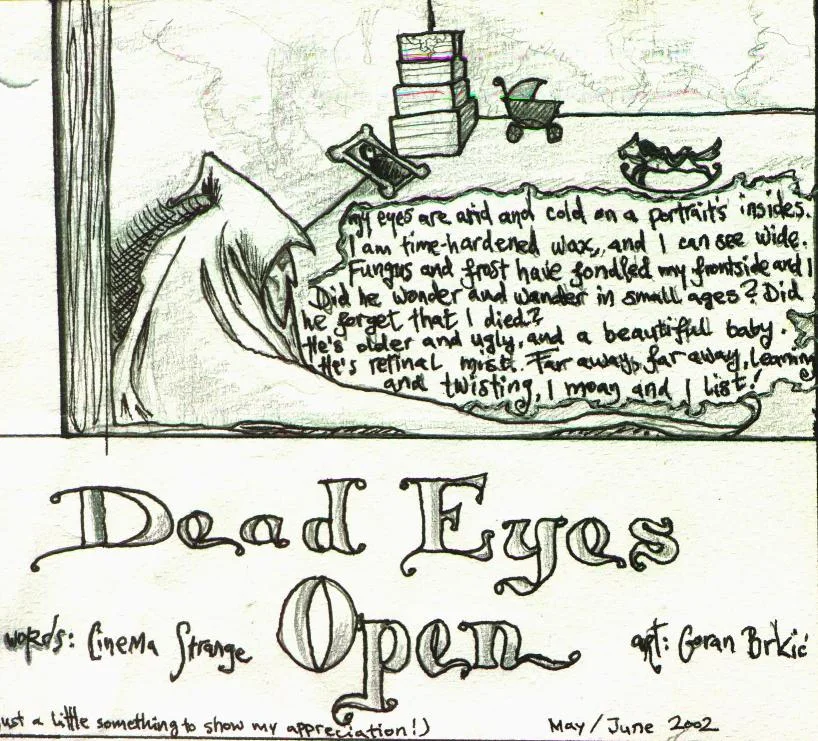 my eyes are arid and cold on a portrait's insides.
I am time-hardened wax,, and I can see wide.
Fungus and frost have fondled my frontside and I
Did he wonder and wander in small ages? Did
he forget that I died?
He's older and ugly, and a beautifull baby.
He's retinal mist. Far away, far away, Learning
and twisting, I moan and I list!
Dead Eyes
Open
words: Cinema Strange
art: Goran Brkić
ust a little something to show my appreciation!)
May/June 2002